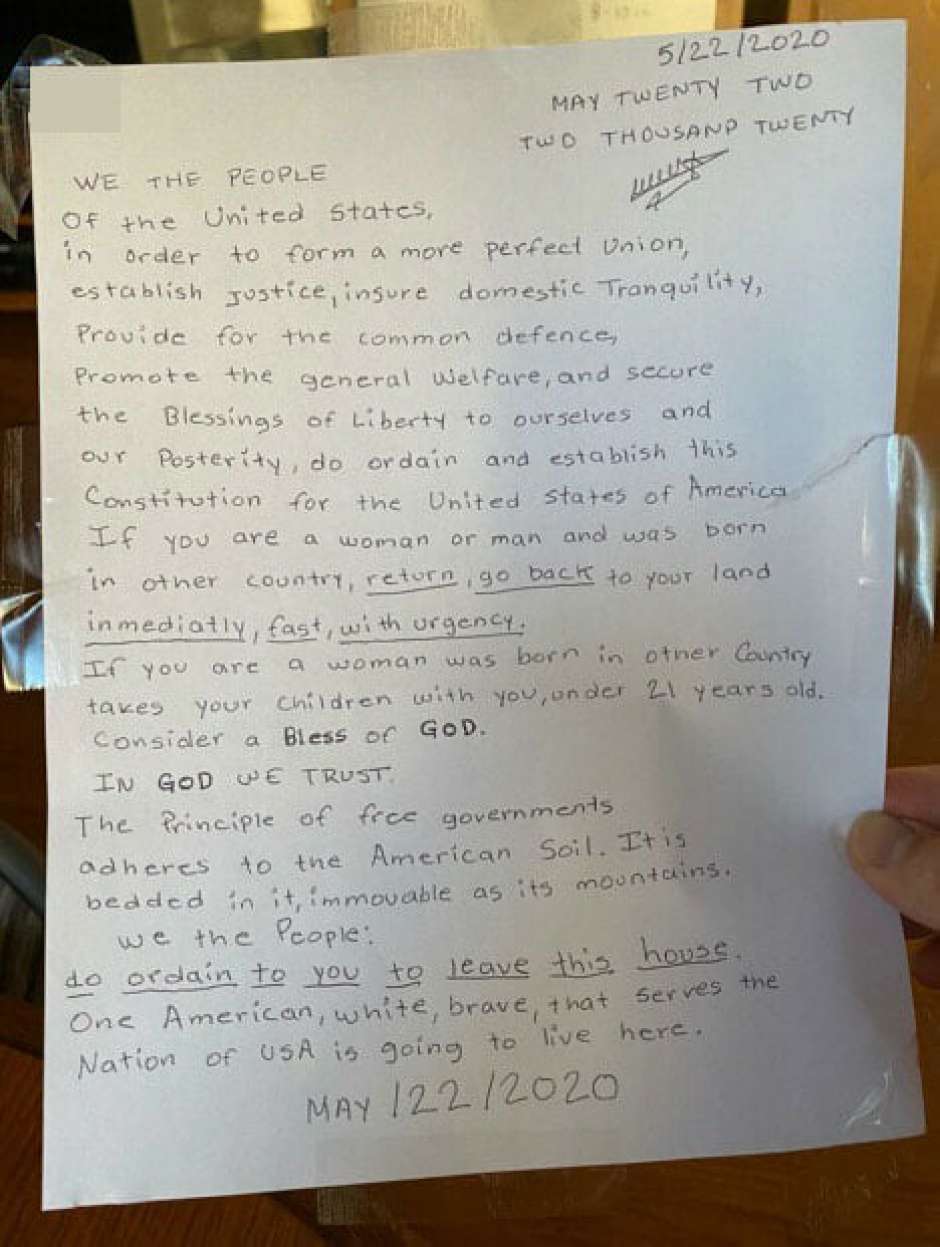 5/22/2020
MAY TWENTY TWO
TWO THOUSAND TWENTY
WE THE PEOPLE
Of the United States,
in order to form a more perfect Union,
establish justice, insure domestic Tranquility,
Provide for the common defence,
Promote the general Welfare, and secure
the Blessings of Liberty to ourselves and
our Posterity, do ordain and establish this
Constitution for the United States of America
If you are a woman or man and was born
in other country, return, go back to your land
inmediatly, fast, with urgency.
If you are a woman was born in other Country
takes your children with you, under 21 years old.
Consider a Bless of GOD.
IN GOD WE TRUST.
The Principle of free governments
adheres to the American Soil. It is
bedded in it, immovable as its mountains.
we the People:
do ordain to you to leave this house.
One American, white, brave, that serves the
Nation of USA is going to live here.
MAY /22/2020